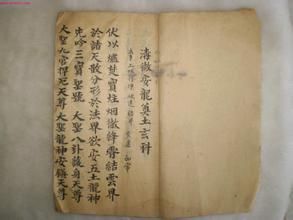 清微安龍奠土玄科
伏以爐焚寶炷烟徹絳霄結雲界
於諸天散分形於法界欲安五土龍神
先吟三寶聖號　大聖八卦護身天尊
大聖九宮捍厄天尊　大聖龍神安鎮天尊